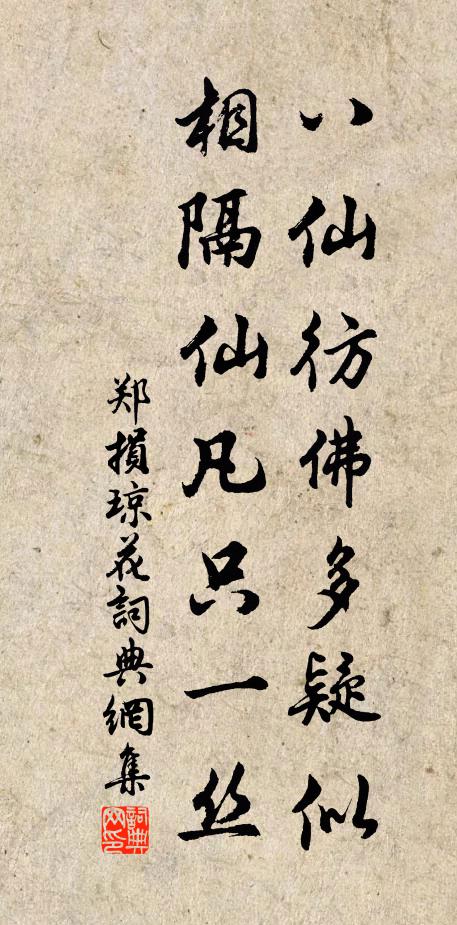 八仙彷佛多疑似
相隔仙凡只一丝
郑损琼花詞典網集
詞典网印